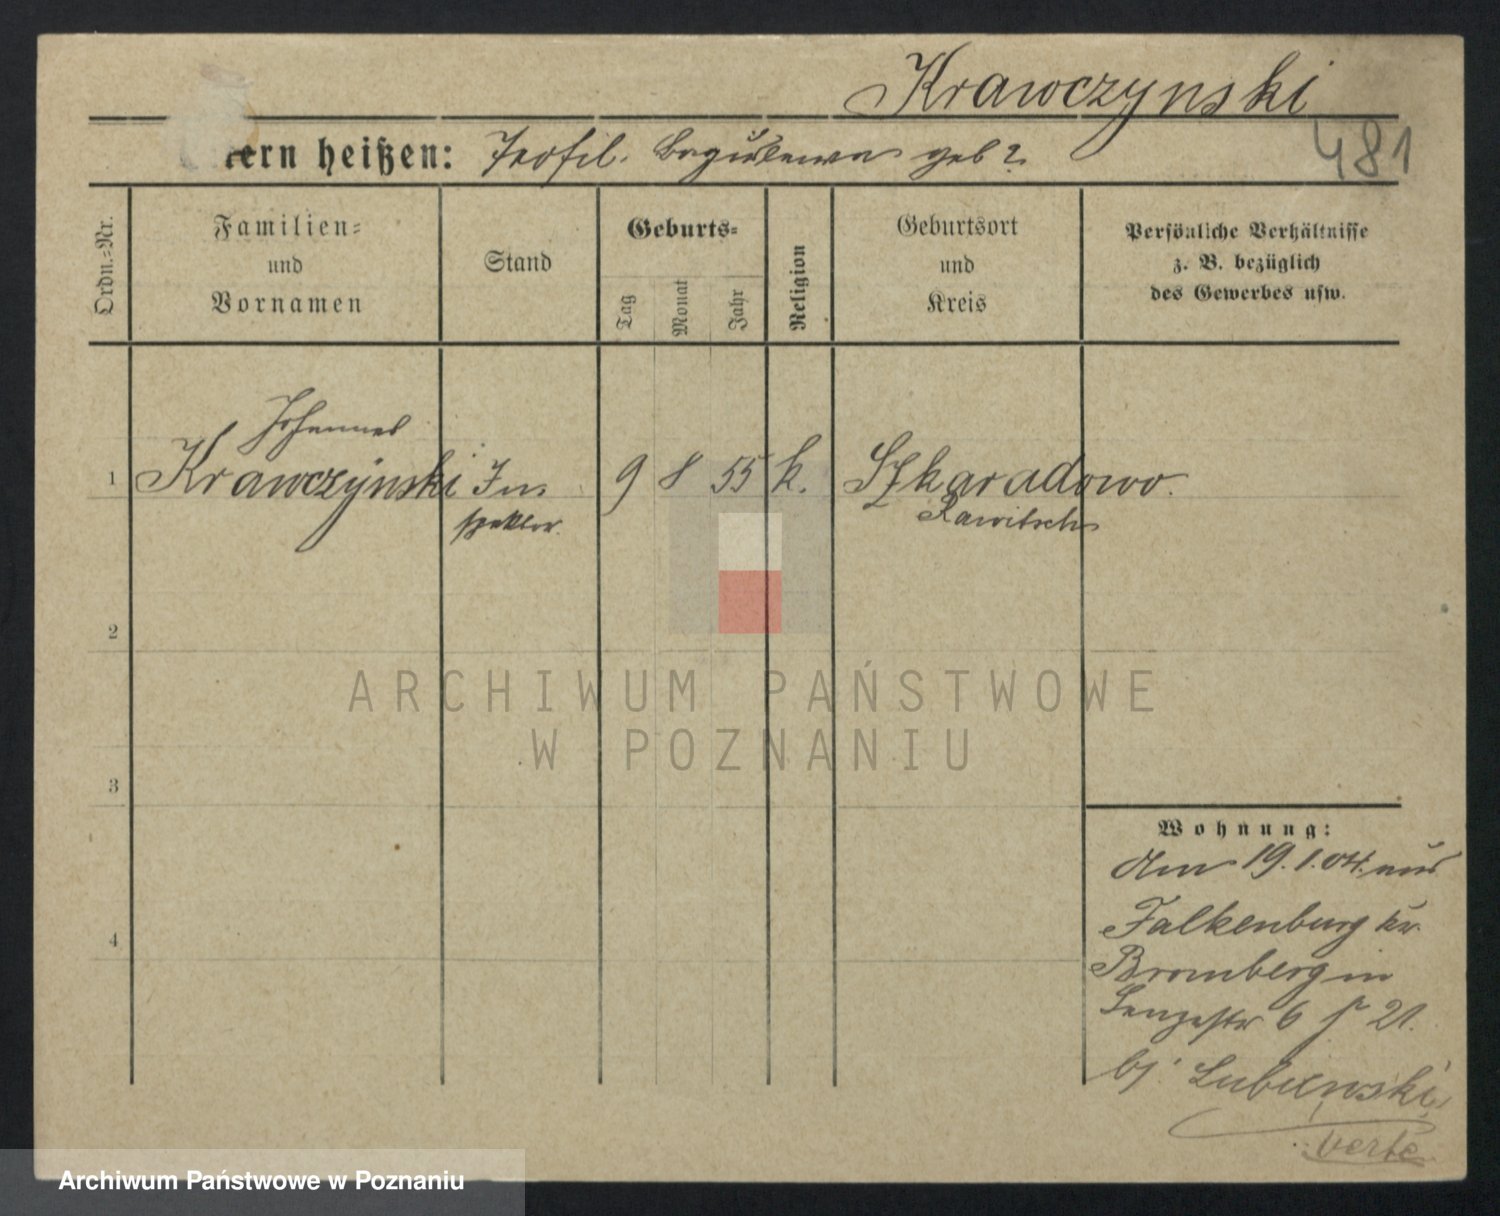 Krawczynski
481
tern heißen: Teofil. geb?
Ordn.=Nr.
Familien=
und
Vornamen
Stand
Geburts=
Tag
Monat
Jahr
Religion
Geburtsort
und
Kreis
Persönliche Verhältnisse
z. B. bezüglich
des Gewerbes usw.
Johannes
1 Krawczynski In 9 8 55 k. Szkaradowo.
spektor. Rawitsch
2
3
4
ARCHIWUM PAŃSTWOWE
W POZNANIU
Wohnung:
Am 19.1.04. aus
Falkenburg kr.
Bromberg in
6 21.
bj. Lubienski
verte
Archiwum Państwowe w Poznaniu